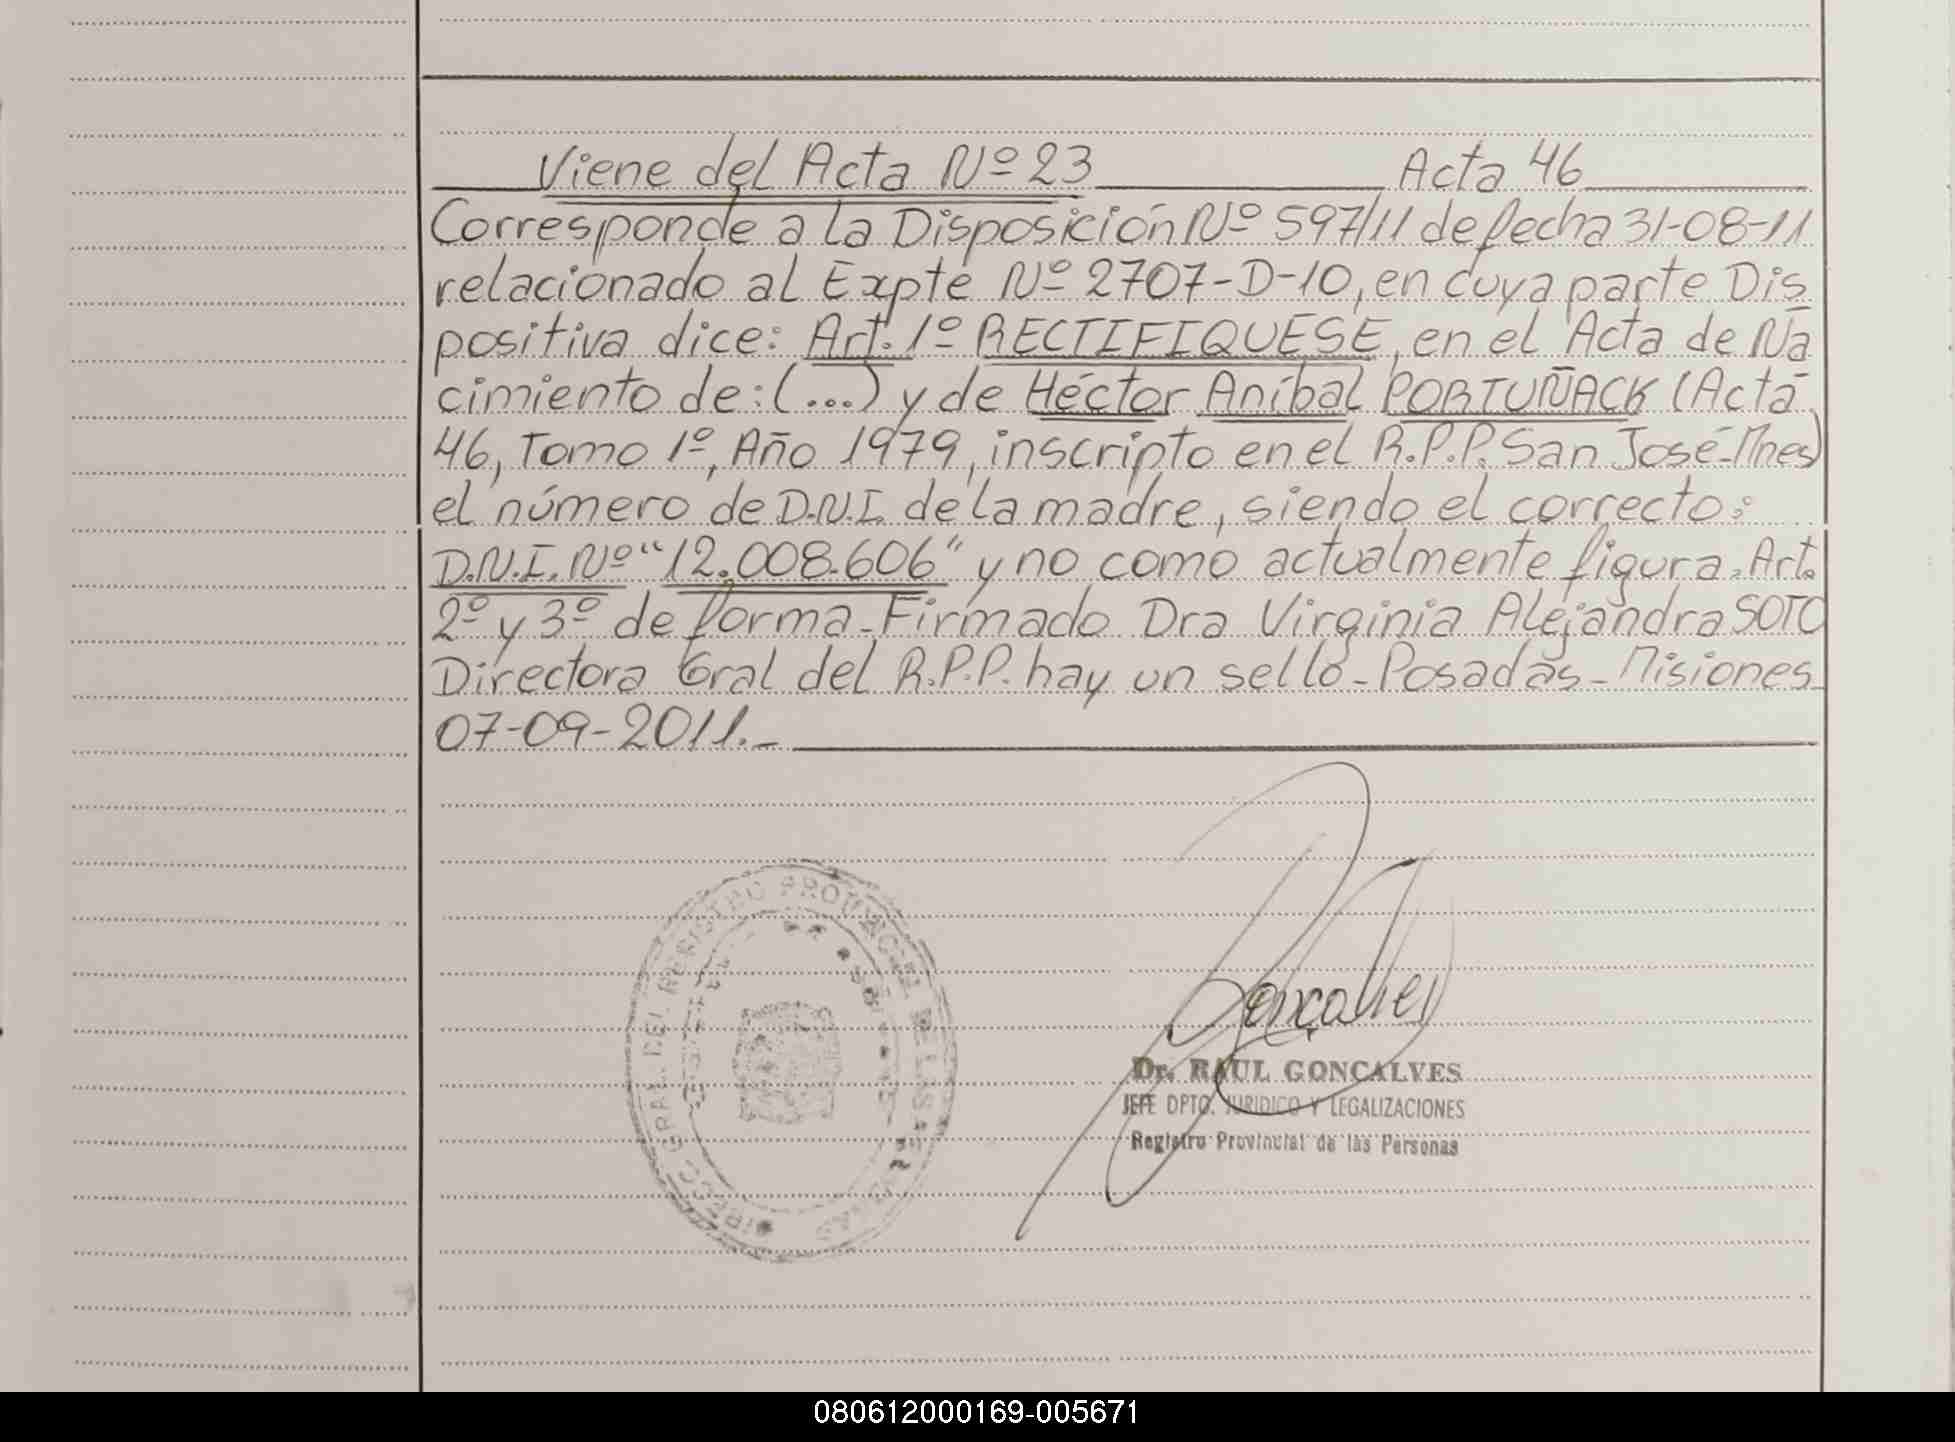 Viene del Acta Nº 23 Acta 46
Corresponde a la Disposición Nº 597/11 de fecha 31-08-11
relacionado al Expte Nº 2707-D-10, en cuya parte Dis
positiva dice: Art. 1º RECTIFIQUESE, en el Acta de Na
cimiento de: (...) y de Héctor Aníbal PORTUÑACK (Acta
46, Tomo 1º, Año 1979, inscripto en el R.P.P. San José-Mnes)
el número de D.N.I. de la madre, siendo el correcto:
D.N.I. Nº "12.008.606" y no como actualmente figura. Art.
2º y 3º de forma - Firmado Dra Virginia Alejandra SOTO
Directora Gral del R.P.P. hay un sello - Posadas - Misiones
07-09-2011.-
DIRECC GRAL DEL REGISTRO PROVINCIAL DE LAS PERSONAS
Goncalves
Dr. RAUL GONCALVES
JEFE DPTO. JURIDICO Y LEGALIZACIONES
Registro Provincial de las Personas
080612000169-005671